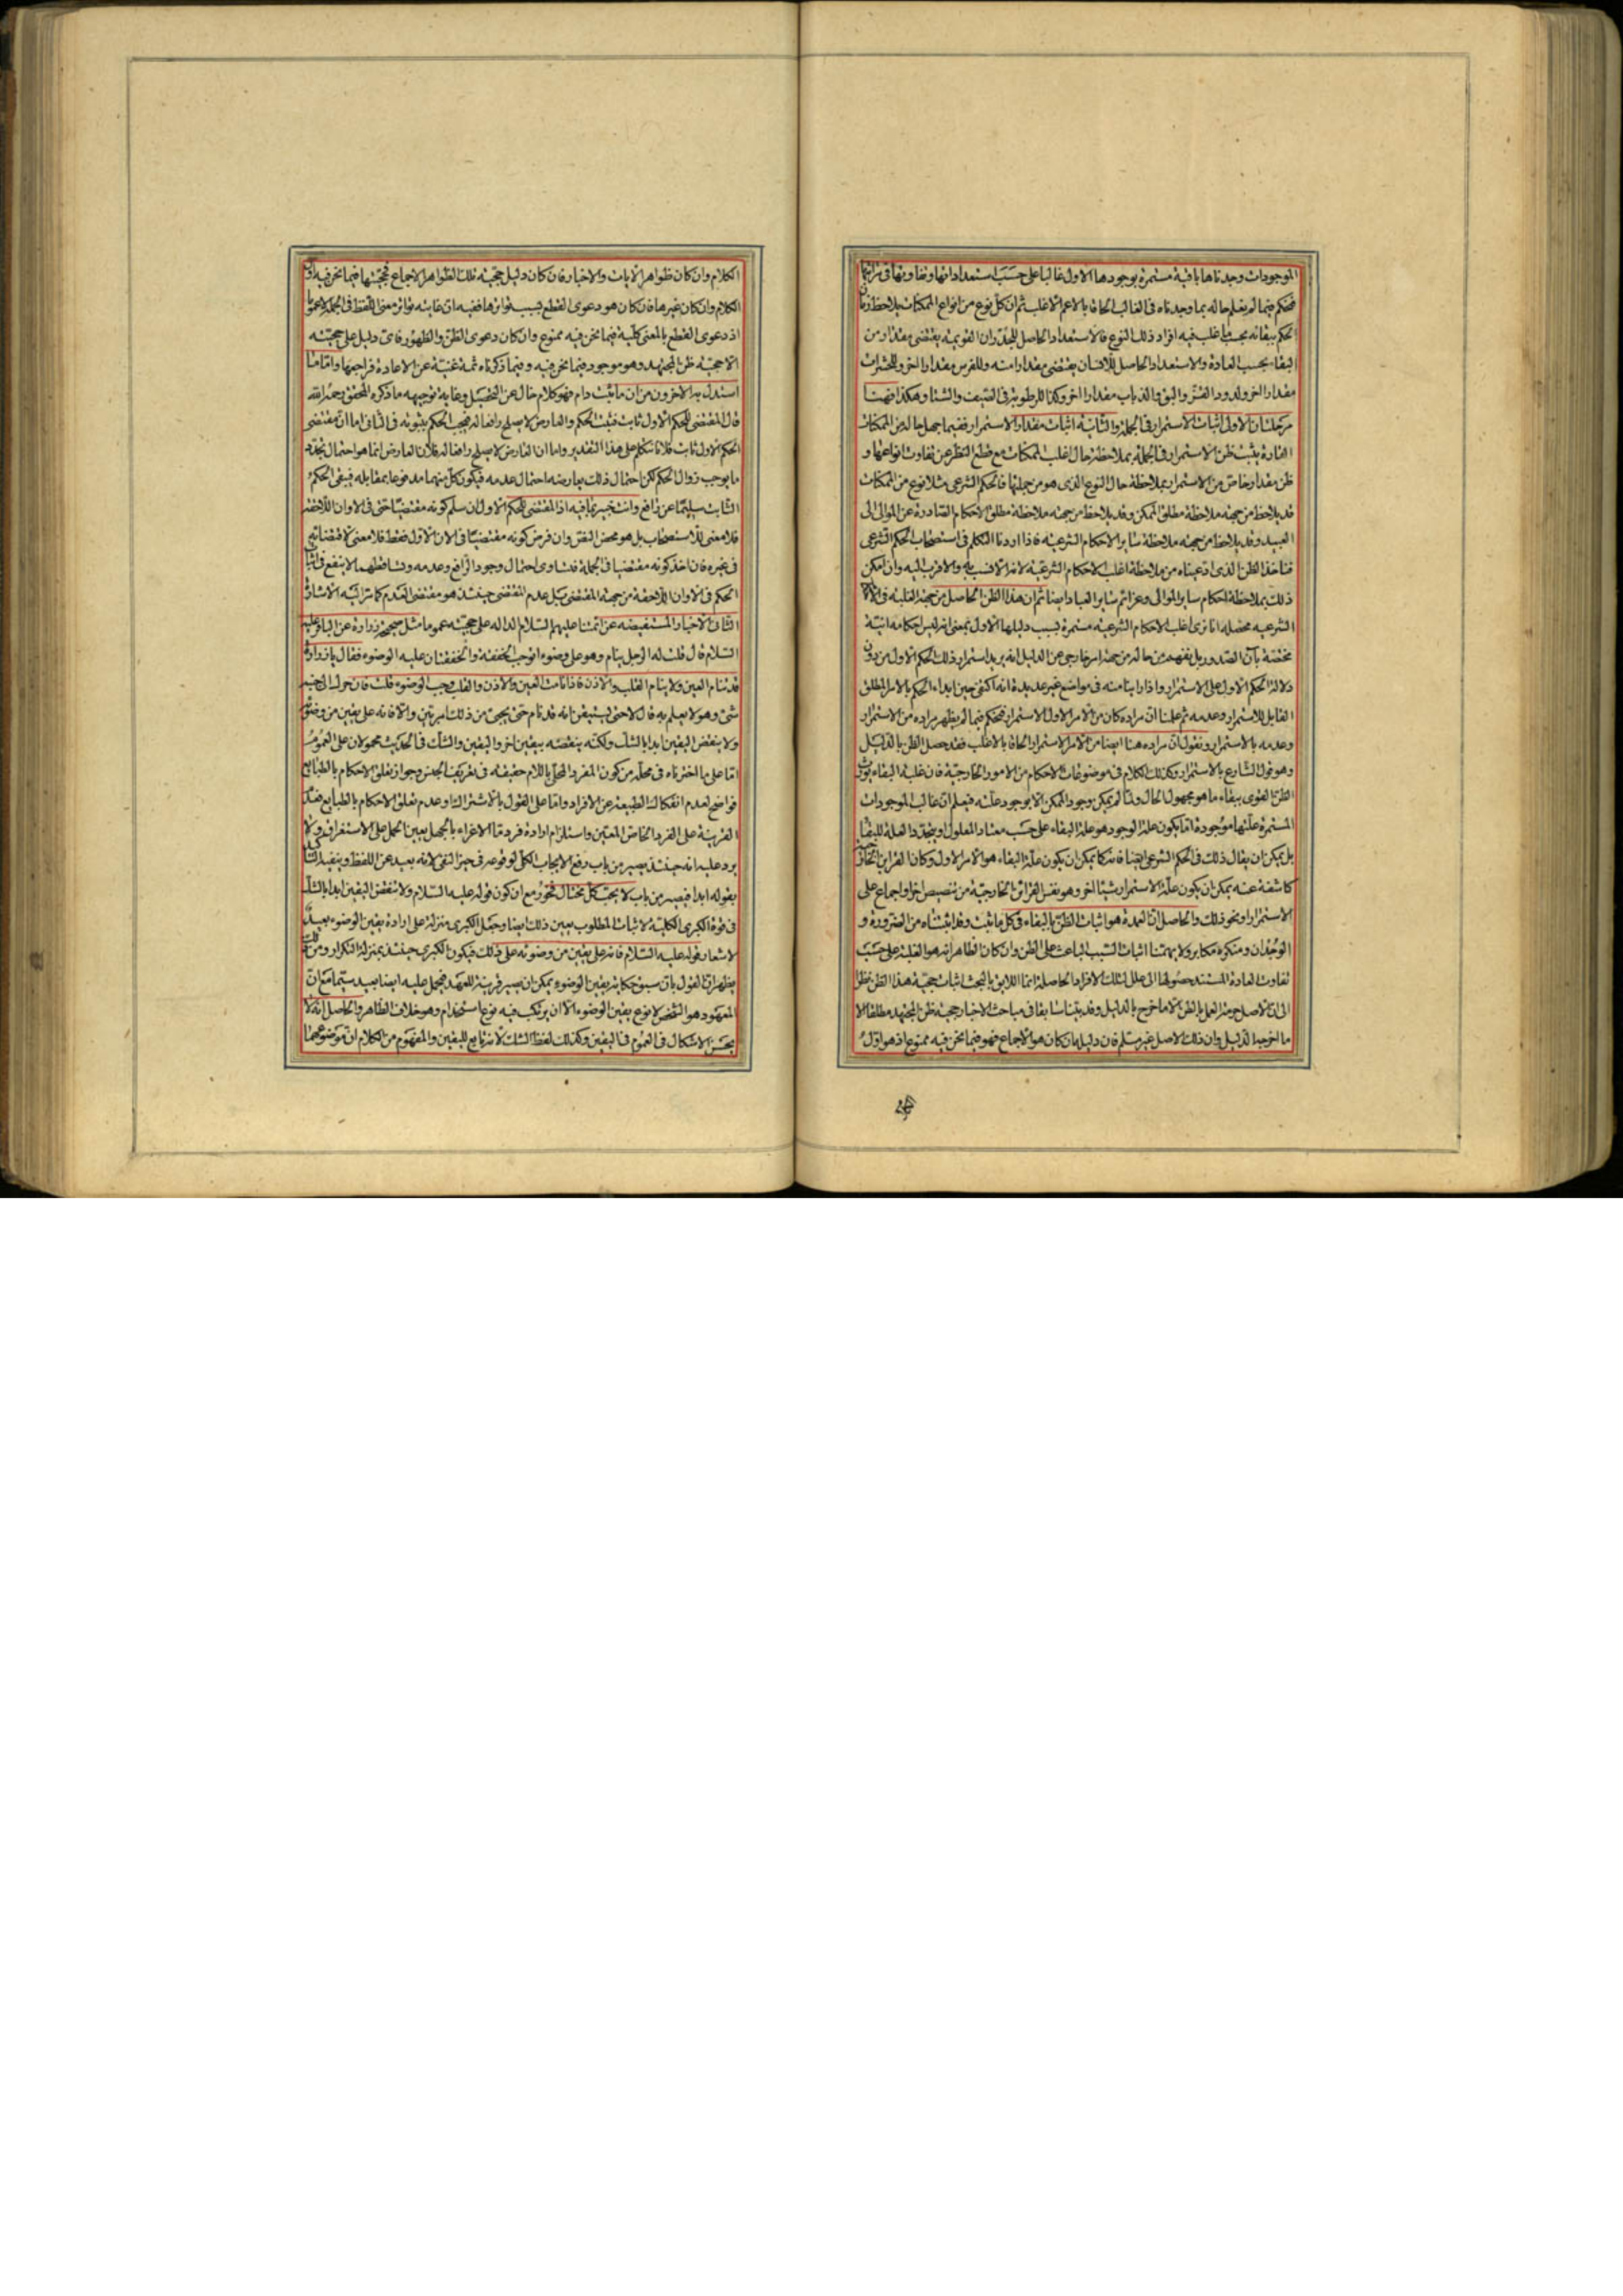 الموجودات وجدناها باقية مستمرة بوجودها الاول غالبا على حسب استعداداتها وتفاوتها فى مراتبها
فنحكم فيما لم يعلم حاله بما وجدناه فى الغالب الحاقا بالاعم الاغلب ثم ان كل نوع من انواع الممكنات يلاحظ زمان
الحكم ببقائه بحسب ما غلب فيه افراد ذلك النوع فالاستعداد الحاصل للجدران القويمة يقتضى مقدارا من
البقاء بحسب العادة والاستعداد الحاصل للانسان يقتضى مقدارا منه وللفرس مقدارا اخر وللحشرات
مقدارا اخر ولدود القز والبق والذباب مقدارا اخر وكذا للرطوبة فى الصيف والشتا وهكذا فهنا
مرحلتان الاولى اثبات الاستمرار فى الجملة والثانية اثبات مقدار الاستمرار ففيما جهل حاله من الممكنات
القارة يثبت ظن الاستمرار فى الجملة بملاحظة حال اغلب الممكنات مع قطع النظر عن تفاوت انواعها و
ظن مقدار خاص من الاستمرار بملاحظة حال النوع الذى هو من جملتها فالحكم الشرعى مثلا نوع من الممكنات
قد يلاحظ من جهة ملاحظة مطلق الممكن وقد يلاحظ من جهة ملاحظة مطلق الاحكام الصادرة عن الموالى الى
العبيد وقد يلاحظ من جهة ملاحظة ساير الاحكام الشرعية فاذا اردنا التكلم فى استصحاب الحكم الشرعى
فناخذ الظن الذى ادعيناه من ملاحظة اغلب الاحكام الشرعية لانه الانسب به والاقرب اليه وان امكن
ذلك بملاحظة احكام ساير الموالى وعزائم ساير العباد ايضا ثم ان هذا الظن الحاصل من جهة الغلبة فى الاحكام
الشرعية محصله انا نرى اغلب الاحكام الشرعية مستمرة بسبب دليلها الاول بمعنى انه ليس احكامه انية
مختصة بآن الصدور بل يفهم من حاله من جهة امر خارجى عن الدليل انه يريد استمرار ذلك الحكم الاول من دون
دلالة الحكم الاول على الاستمرار واذا راينا منه فى مواضع غير عديدة انه اكتفى حين ابداء الحكم بالامر المطلق
القابل للاستمرار وعدمه ثم علمنا ان مراده كان من الامر الاول الاستمرار فنحكم فيما لم يظهر مراده من الاستمرار
وعدمه بالاستمرار ونقول ان مراده هنا ايضا من الامر الاستمرار الحاقا بالاغلب فقد حصل الظن بالدليل
وهو قول الشارع بالاستمرار وكذلك الكلام فى موضوعات الاحكام من الامور الخارجية فان غلبة البقاء يورث
الظن القوى ببقاء ما هو مجهول الحال ولما لم يمكن وجود الممكن الا بوجود علته فيعلم ان غالب الموجودات
المستمرة علتها موجودة اما بكون علة الوجود هو علة البقاء على حسب معتاد المعلول او بتجدد العلة للبقاء
بل يمكن ان يقال ذلك فى الحكم الشرعى ايضا فانه كما يمكن ان يكون علة البقاء هو الامر الاول وكانا القراين الخارجية
كاشفة عنه يمكن ان يكون علة الاستمرار شيئا اخر وهو نفس القرائن الخارجية من تنصيص اخر او اجماع على
الاستمرار او نحو ذلك والحاصل ان العمدة هو اثبات الظن بالبقاء فى كل ما يثبت وقد اثبتناه من الضرورة و
الوجدان ومنكره مكابر ولا يهمنا اثبات السبب الباعث على الظن وان كان الظاهر انه هو الغلبة على حسب
تفاوت العادة المستند حصولها الى علل تلك الافراد الحاصلة انما اللايق بالبحث اثبات حجية هذا الظن نظرا
الى ان الاصل حرمة العمل بالظن الا ما اخرج بالدليل وقد بيتنا سابقا فى مباحث الاخبار حجية ظن المجتهد مطلقا الا
ما اخرجه الدليل وان ذلك الاصل غير مسلم فان دليله ان كان هو الاجماع فهو فيما نحن فيه ممنوع اذ هو اول
الكلام وان كان ظواهر الايات والاخبار فان كان دليل حجية تلك الظواهر الاجماع فحجيتها فيما نحن فيه اول
الكلام وان كان غيرها فان كان هو دعوى القطع بسبب تواترها ففيه ان غايته تواتر معنى اللفظ فى الجملة لا عموما
اذ دعوى القطع بالمعنى كلية فيما نحن فيه ممنوع وان كان دعوى الظن والظهور فاى دليل على حجيته
الا حجية ظن المجتهد وهو موجود فيما نحن فيه وفيما ذكرناه ثمة غنية عن الاعادة فراجعها واما ما
استدل به الاخرون من ان ما ثبت دام فهو كلام خال عن التحصيل وغاية توجيهه ما ذكره المحقق رحمه الله
قال المقتضى للحكم الاول ثابت فيثبت الحكم والعارض لا يصلح رافعا له فيجب الحكم بثبوته فى الثانى اما ان مقتضى
الحكم الاول ثابت فلانا نتكلم على هذا التقدير واما ان العارض لا يصلح رافعا له فلان العارض انما هو احتمال تجدد
ما يوجب زوال الحكم لكن احتمال ذلك يعارضه احتمال عدمه فيكون كل منهما مدفوعا بمقابله فيبقى الحكم
الثابت سليما عن رافع وانت خبير بما فيه اذ المقتضى للحكم الاول ان سلم كونه مقتضيا حتى فى الاوان اللاحقة
فلا معنى للاستصحاب بل هو محض النص وان فرض كونه مقتضيا فى الان الاول فقط فلا معنى لاقتضائه
فى غيره فان اخذ كونه مقتضيا فى الجملة فتساوى احتمال وجود الرافع وعدمه وتساقطهما لا ينفع فى اثبات
الحكم فى الاوان اللاحقة من جهة المقتضى بل عدم المقتضى حينئذ هو مقتضى العدم كما مرت اليه الاشارة
الثانى الاخبار المستفيضة عن ائمتنا عليهم السلام الدالة على حجيته عموما مثل صحيحة زرارة عن الباقر عليه
السلام قال قلت له الرجل ينام وهو على وضوء اتوجب الخفقة والخفقتان عليه الوضوء فقال يا زرارة
قد تنام العين ولا ينام القلب والاذن فاذا نامت العين والاذن والقلب وجب الوضوء قلت فان حرك الى جنبه
شئ وهو لا يعلم به قال لا حتى يستيقن انه قد نام حتى يجئ من ذلك امر بين والا فانه على يقين من وضوئه
ولا ينقض اليقين ابدا بالشك ولكنه ينقضه بيقين اخر واليقين والشك فى الحديث محمولان على العموم
اما على ما اخترناه فى محله من كون المفرد المحلى باللام حقيقة فى تعريف الجنس وجواز تعلق الاحكام بالطبايع
فواضح لعدم انفكاك الطبيعة عن الافراد واما على القول بالاشتراك وعدم تعلق الاحكام بالطبايع فعدم
القرينة على الفرد الخاص المعين واستلزام ارادة فرد ما الاغراء بالجهل يعين الحمل على الاستغراق ولا
يرد عليه انه حينئذ يصير من باب رفع الايجاب الكلى لوقوعه فى حيز النفى لانه بعيد عن اللفظ وينفيه التاكيد
بقوله ابدا فيصير من باب لا يحب كل مختال فخور مع ان كون قوله عليه السلام ولا ينقض اليقين ابدا بالشك
فى قوة الكبرى الكلية لاثبات المطلوب يعين ذلك ايضا وجعل الكبرى منزلة على ارادة يقين الوضوء بعيد
لاشعار قوله عليه السلام فانه على يقين من وضوئه على ذلك فيكون الكبرى حينئذ بمنزلة التكرار ومن ذلك
يظهر ان القول بان سبق حكاية يقين الوضوء يمكن ان يصير قرينة للعهد فيحمل عليه ايضا بعيد سيما مع ان
المعهود هو الشخص لا نوع يقين الوضوء الا ان يرتكب فيه نوعا استخدام وهو خلاف الظاهر والحاصل انه لا
يحسن الاشكال فى العموم فى اليقين وكذلك لفظ الشك لانه تابع لليقين والمفهوم من الكلام ان موضوعهما